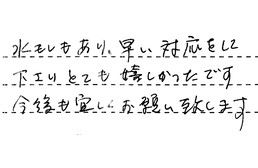 水もしもあり、早い対応をして
下さりとても嬉しかったです
今後も宜しくお願い致します